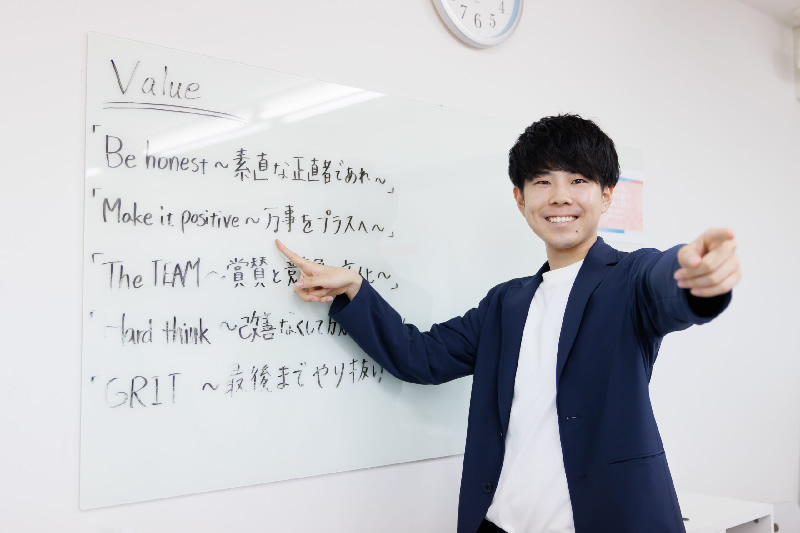 Value
「Be honest～素直な正直者であれ～」
「Make it positive～万事をプラスへ～」
「The TEAM～賞賛と 文化～」
Hard think～改善なくして
「GRIT～最後までやり抜い
7 6 5